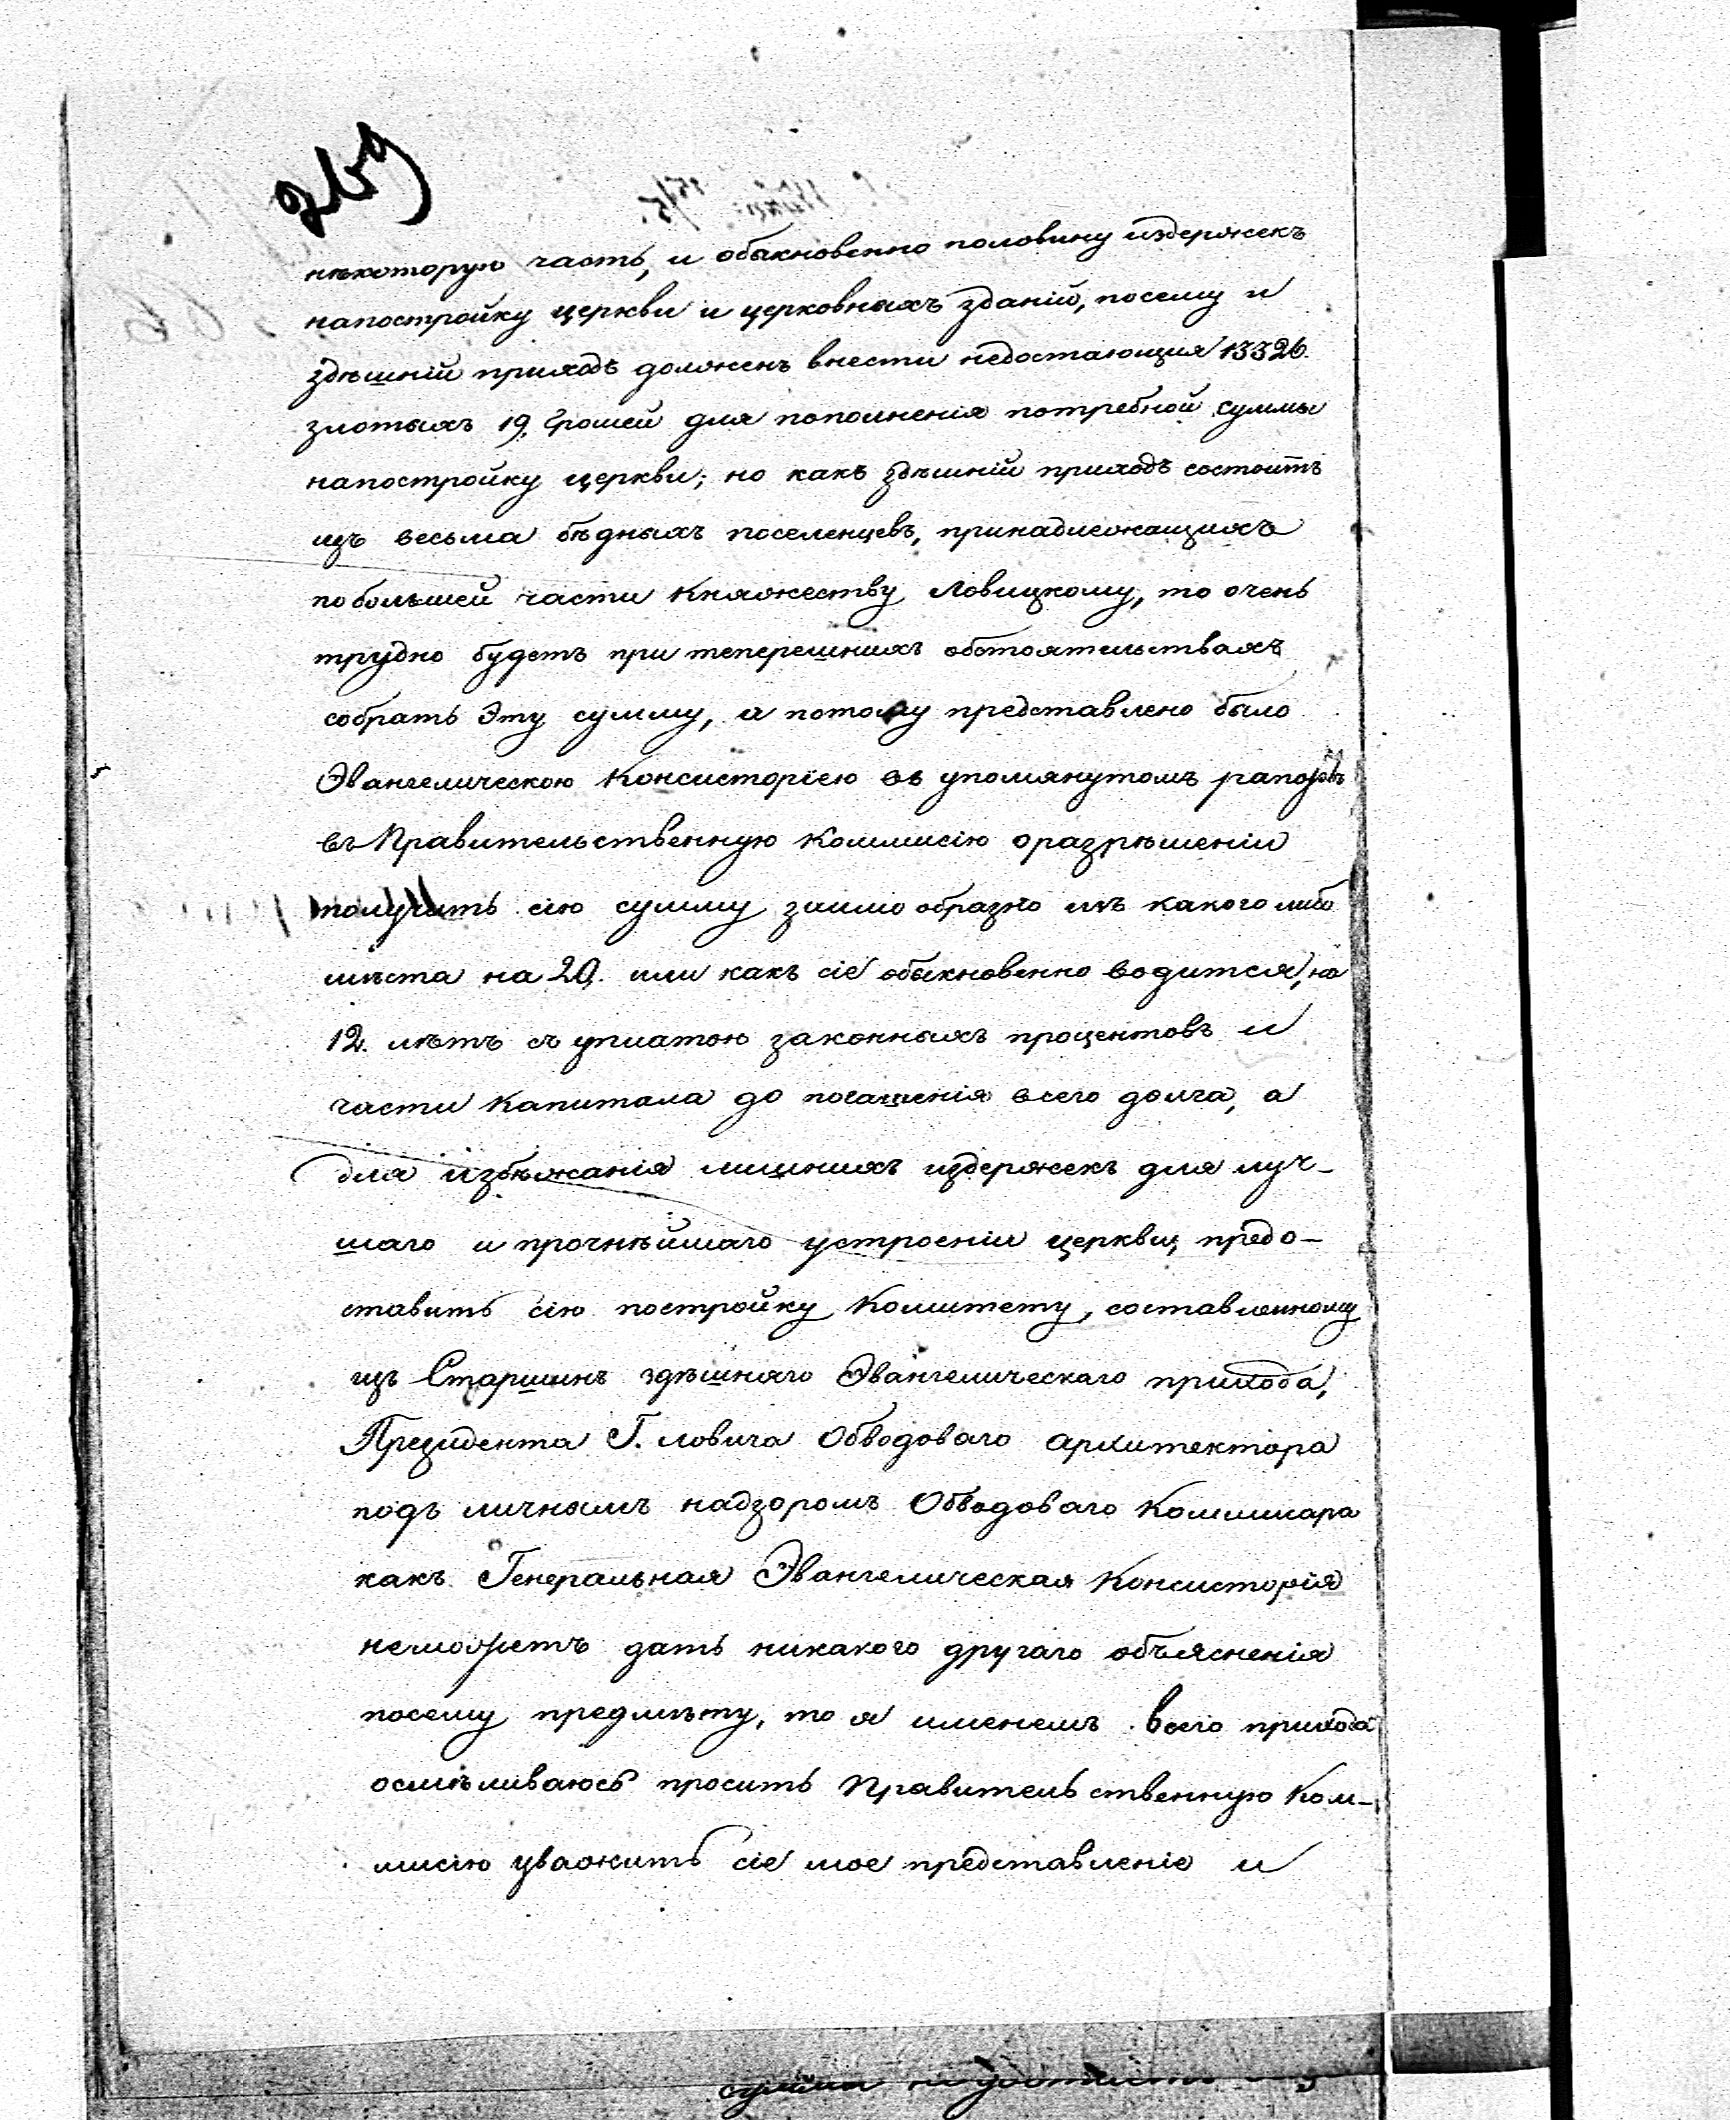 нѣкоторую часть, и обыкновенно половину издержекъ
напостройку церкви и церковныхъ зданій, посему и
здѣшній приходъ долженъ внести недостающия 13326.
злотыхъ 19. Грошей для пополненія потребной суммы
напостройку церкви; но какъ здѣшній приходъ состоитъ
изъ весьма бѣдныхъ поселенцевъ, принадлежащихъ
побольшей части Княжеству Ловицкому, то очень
трудно будетъ при теперешнихъ обстоятельствахъ
собрать Эту сумму, а потому представлено было
Эвангелическою Консисторіею въ упомянутомъ рапортѣ
въ Правительственную Коммисію оразрѣшеніи
получить сію сумму заимообразно изъ какого либо
мѣста на 20. или какъ сіе обыкновенно водится, на
12. лѣтъ съ уплатою законныхъ процентовъ и
части Капитала до погашенія всего долга, а
для избѣжанія лишнихъ издержекъ для луч-
шаго и прочнѣйшаго устроеніи церкви, предо-
ставить сію постройку Комитету, составленному
изъ Старшинъ здѣшняго Эвангелическаго прихода,
Президента Г. Ловича Обводоваго Архитектора
подъ личнымъ надзоромъ Обводоваго Коммисара
какъ Генеральная Эвангелическая Консисторія
неможетъ дать никакого другаго объясненія
посему предмѣту, то я именемъ всего прихода
осмѣливаюсь просить Правительственную Ком-
мисію уважить сіе мое представленіе и